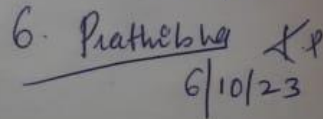 6. Prathibha K.P
6/10/23